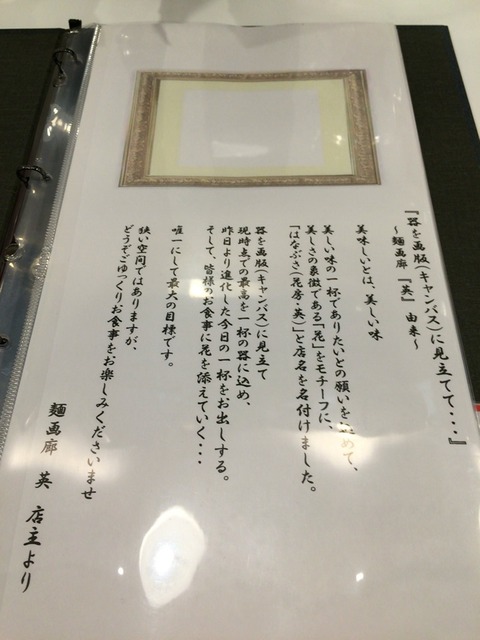 『器を画版(キャンバス)に見立てて・・・』
～麺画廊 『英』 由来～
美味しいとは、美しい味
美しい味の一杯でありたいとの願いを めて、
美しさの象徴である「花」をモチーフに、
「はなぶさ(花房・英)」と店名を名付けました。
器を画版(キャンバス)に見立て
現時点での最高を一杯の器に込め、
昨日より進化した今日の一杯をお出しする。
そして、皆様のお食事に花を添えていく・・・
唯一にして最大の目標です。
狭い空間ではありますが、
どうぞごゆっくりお食事をお楽しみくださいませ
麺画廊 英 店主より